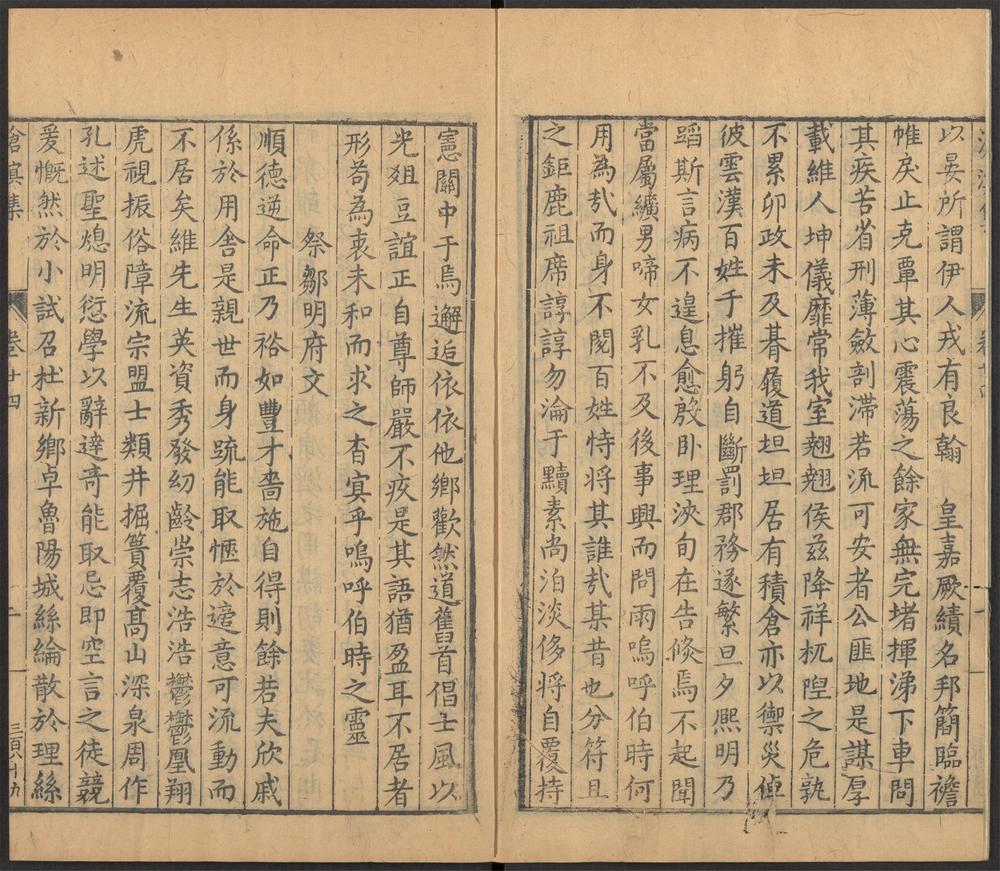 以晏所謂伊人戎有良翰　皇嘉厥績名邦簡臨襜
帷戾止克覃其心震蕩之餘家無完堵揮涕下車問
其疾苦省刑薄斂剖滯若流可安者公匪地是謀厚
載維人坤儀靡常我室翹翹侯茲降祥杌隉之危孰
不累卯政未及朞履道坦坦居有積倉亦以禦災倬
彼雲漢百姓于摧躬自斷罰郡務遂繁旦夕熈明乃
蹈斯言病不遑息愈殷臥理浹旬在告倐焉不起聞
當屬纊男啼女乳不及後事興而問雨嗚呼伯時何
用為㢤而身不閱百姓恃將其誰㢤某昔也分符且
之鉅鹿祖席諄諄勿淪于黷素尚泊淡侈將自覆持
憲關中于焉邂逅依依他鄉歡然道舊首倡士風以
光俎豆誼正自尊師嚴不疚是其語猶盈耳不居者
形苟為衷未和而求之杳寞乎嗚呼伯時之靈
祭鄒明府文
順德逆命正乃裕如豐才嗇施自得則餘若夫欣戚
係於用舍是親世而身疏能取愜於適意可流動而
不居矣維先生英資秀發幼齡崇志浩浩鬱鬱鳳翔
虎視振俗障流宗盟士類井掘簣覆高山深泉周作
孔述聖熄明愆學以辭達奇能取忌即空言之徒競
爰慨然於小試召杜新鄉卓魯陽城絲綸散於理絲
滄溟集　卷十四